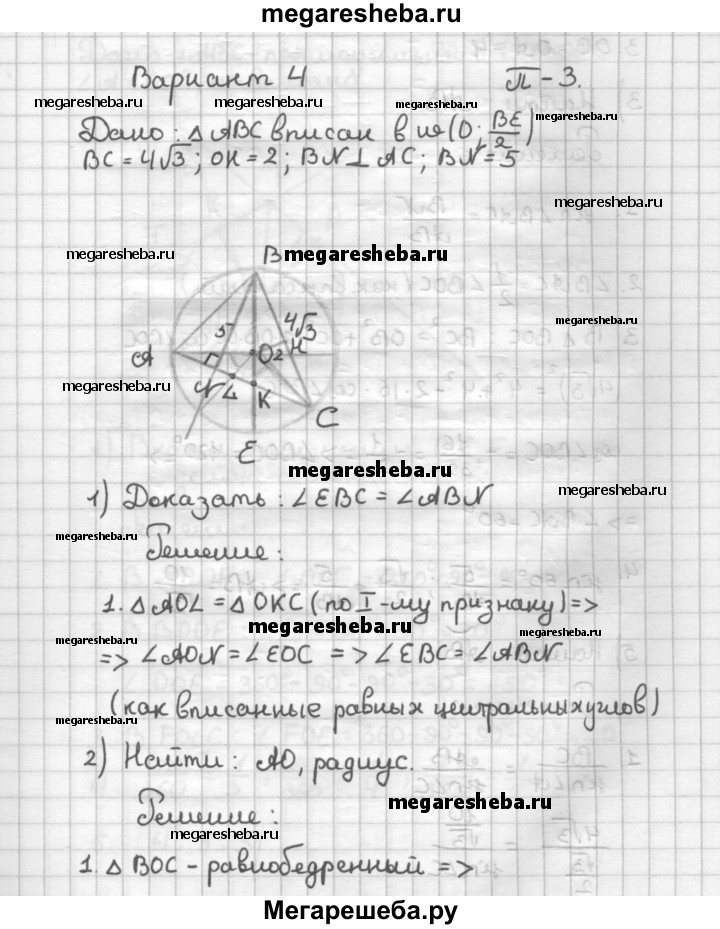 megaresheba.ru
Вариант 4 П-3.
megaresheba.ru megaresheba.ru megaresheba.ru megaresheba.ru
Дано: △ ABC вписан в (O; BE/2)
BC = 4√3; OH = 2; BN ⊥ AC; BN = 5
megaresheba.ru
megaresheba.ru
B megaresheba.ru
5 4√3 megaresheba.ru
A O 2 H
megaresheba.ru N L K
C
E
megaresheba.ru
1) Доказать: ∠EBC = ∠ABN
megaresheba.ru
megaresheba.ru
Решение:
1. △ AOL = △ OKC (по I-му признаку) =>
megaresheba.ru
megaresheba.ru megaresheba.ru
=> ∠AON = ∠EOC => ∠EBC = ∠ABN
(как вписанные равных центральных углов)
megaresheba.ru
2) Найти: AO, радиус.
megaresheba.ru
Решение:
megaresheba.ru
1. △ BOC - равнобедренный =>
Мегарешеба.ру